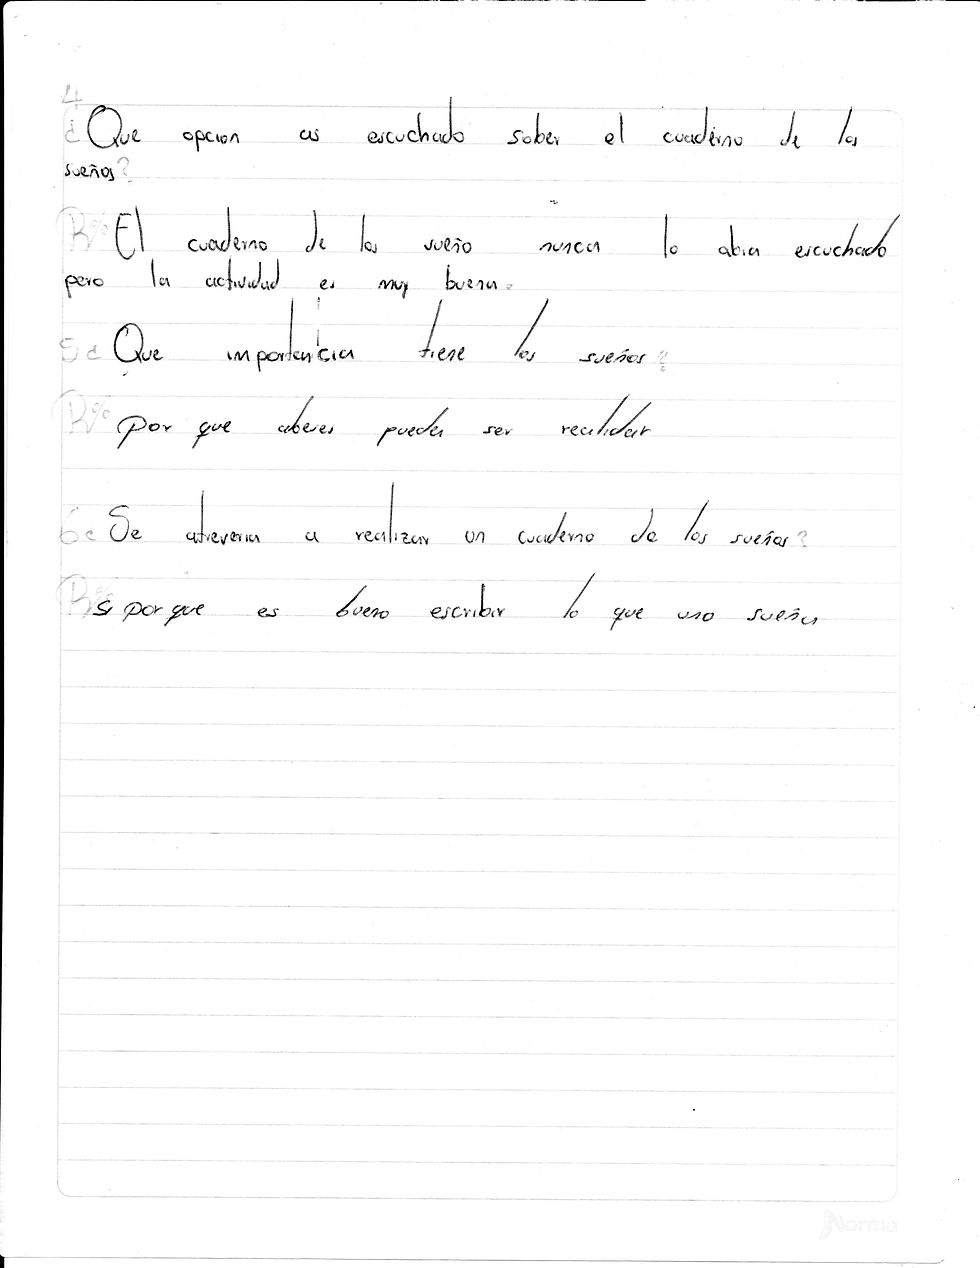 4
¿Que opcion as escuchado sober el cuaderno de los
sueños?
R% El cuaderno de los sueño nunca lo abia escuchado
pero la actividad es muy buena.
5 ¿Que importancia tiene los sueños?
R% por que abeses puede ser realidar
6 ¿Se atreveria a realizar un cuaderno de los sueños?
R% Si por que es bueno escribir lo que uno sueña
Norma